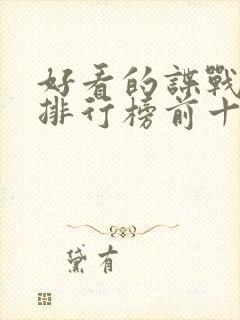 好看的諜戰
排行榜前十
黛有